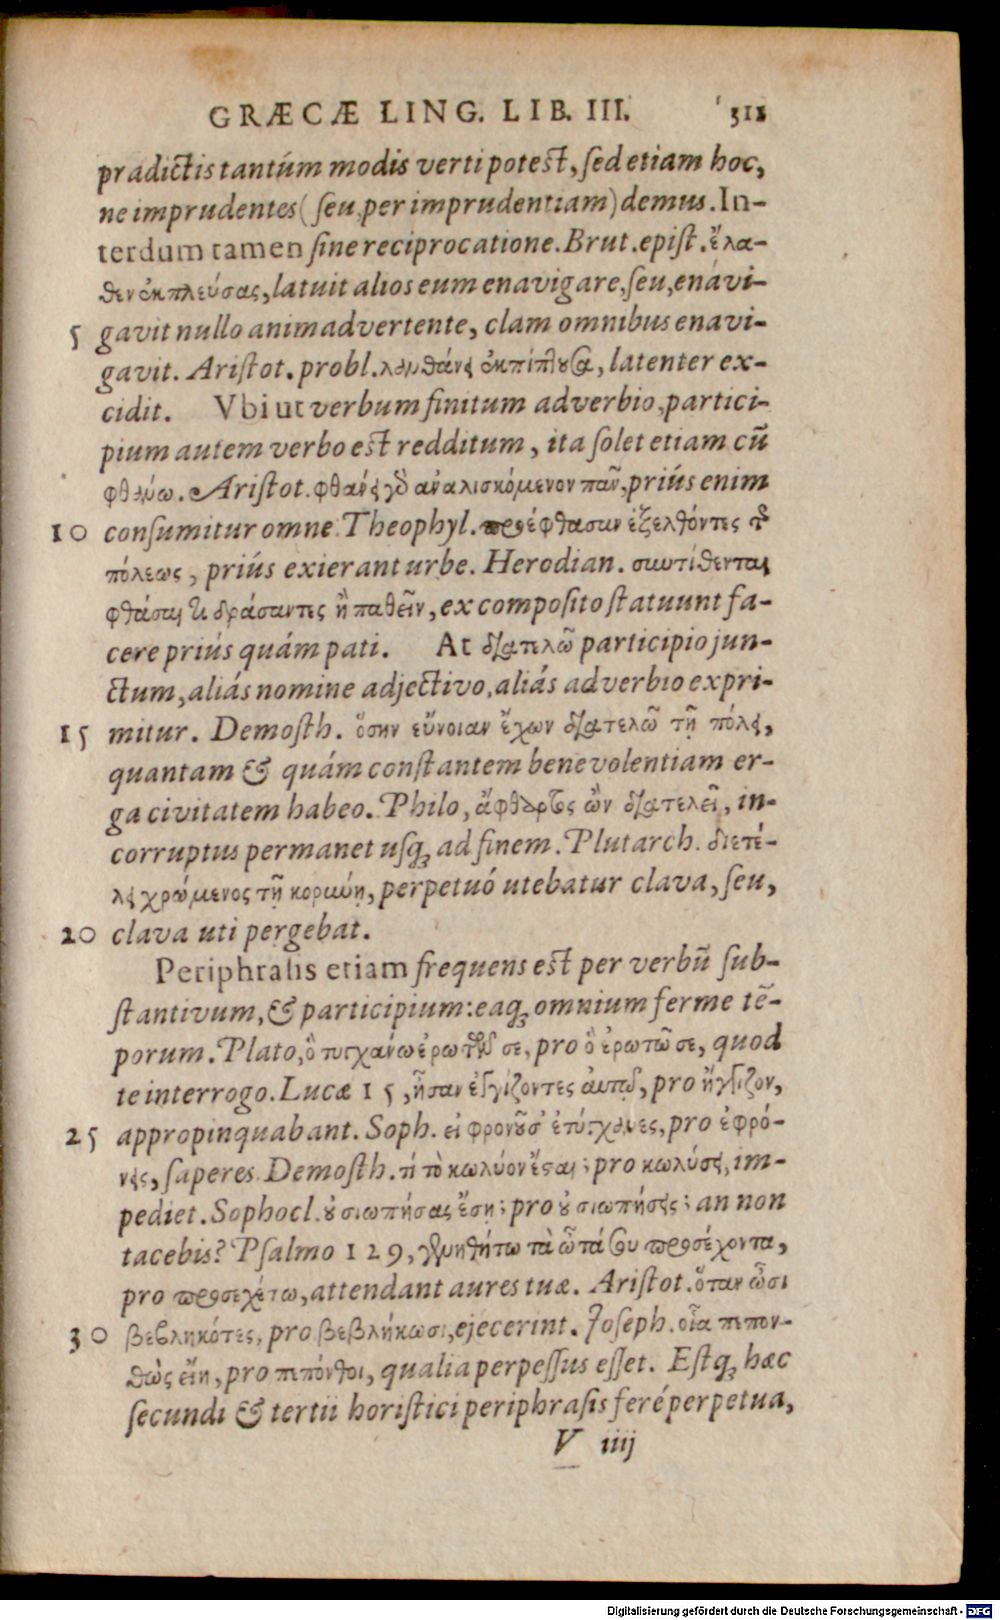 GRÆCÆ LING. LIB. III. 311
prædictis tantúm modis verti potest, sed etiam hoc,
ne imprudentes (seu per imprudentiam) demus. In-
terdum tamen sine reciprocatione. Brut. epist. ἔλα-
θεν ἐκπλεύσας, latuit alios eum enavigare, seu, enávi-
5 gavit nullo animadvertente, clam omnibus enavi-
gavit. Aristot. probl. λανθάνει ἐκπίπτουσα, latenter ex-
cidit. Vbi ut verbum finitum adverbio, partici-
pium autem verbo est redditum, ita solet etiam cū
φθάνω. Aristot. φθάνει γὸ ἀναλισκόμενον πᾶν, priús enim
10 consumitur omne. Theophyl. προέφθασαν ἐξελθόντες τῆς
πόλεως, priús exierant urbe. Herodian. συντίθενται
φθάσαι τι δράσαντες ἢ παθεῖν, ex composito statuunt fa-
cere priús quám pati. At διατελῶ participio jun-
ctum, aliás nomine adjectivo, aliás adverbio expri-
15 mitur. Demosth. ὅσην εὔνοιαν ἔχων διατελῶ τῇ πόλει,
quantam & quám constantem benevolentiam er-
ga civitatem habeo. Philo, ἄφθαρτος ὢν διατελεῖ, in-
corruptus permanet usq; ad finem. Plutarch. διετέ-
λει χρώμενος τῇ κορύνῃ, perpetuó utebatur clava, seu,
20 clava uti pergebat.
Periphrasis etiam frequens est per verbū sub-
stantivum, & participium: eaq; omnium ferme tē-
porum. Plato, ὃ τυγχάνω ἐρωτῶν σε, pro ὃ ἐρωτῶ σε, quod
te interrogo. Lucæ 15, ἦσαν ἐγγίζοντες αὐτῷ, pro ἤγγιζον,
25 appropinquabant. Soph. εἰ φρονοῦσ' ἐτύγχανες, pro ἐφρό-
νεις, saperes. Demosth. τί τὸ κωλύον ἔσαι; pro κωλύσει, im-
pediet. Sophocl. οὐ σιωπήσας ἔσῃ; pro οὐ σιωπήσεις; an non
tacebis? Psalmo 129, γενηθήτω τὰ ὦτά σου προσέχοντα,
pro προσεχέτω, attendant aures tuæ. Aristot. ὅταν ὦσι
30 βεβληκότες, pro βεβλήκωσι, ejecerint. Joseph. οἷα πεπον-
θὼς εἴη, pro πεπόνθοι, qualia perpessus esset. Estq; hæc
secundi & tertii horistici periphrasis feré perpetua,
V iiij
Digitalisierung gefördert durch die Deutsche Forschungsgemeinschaft - DFG